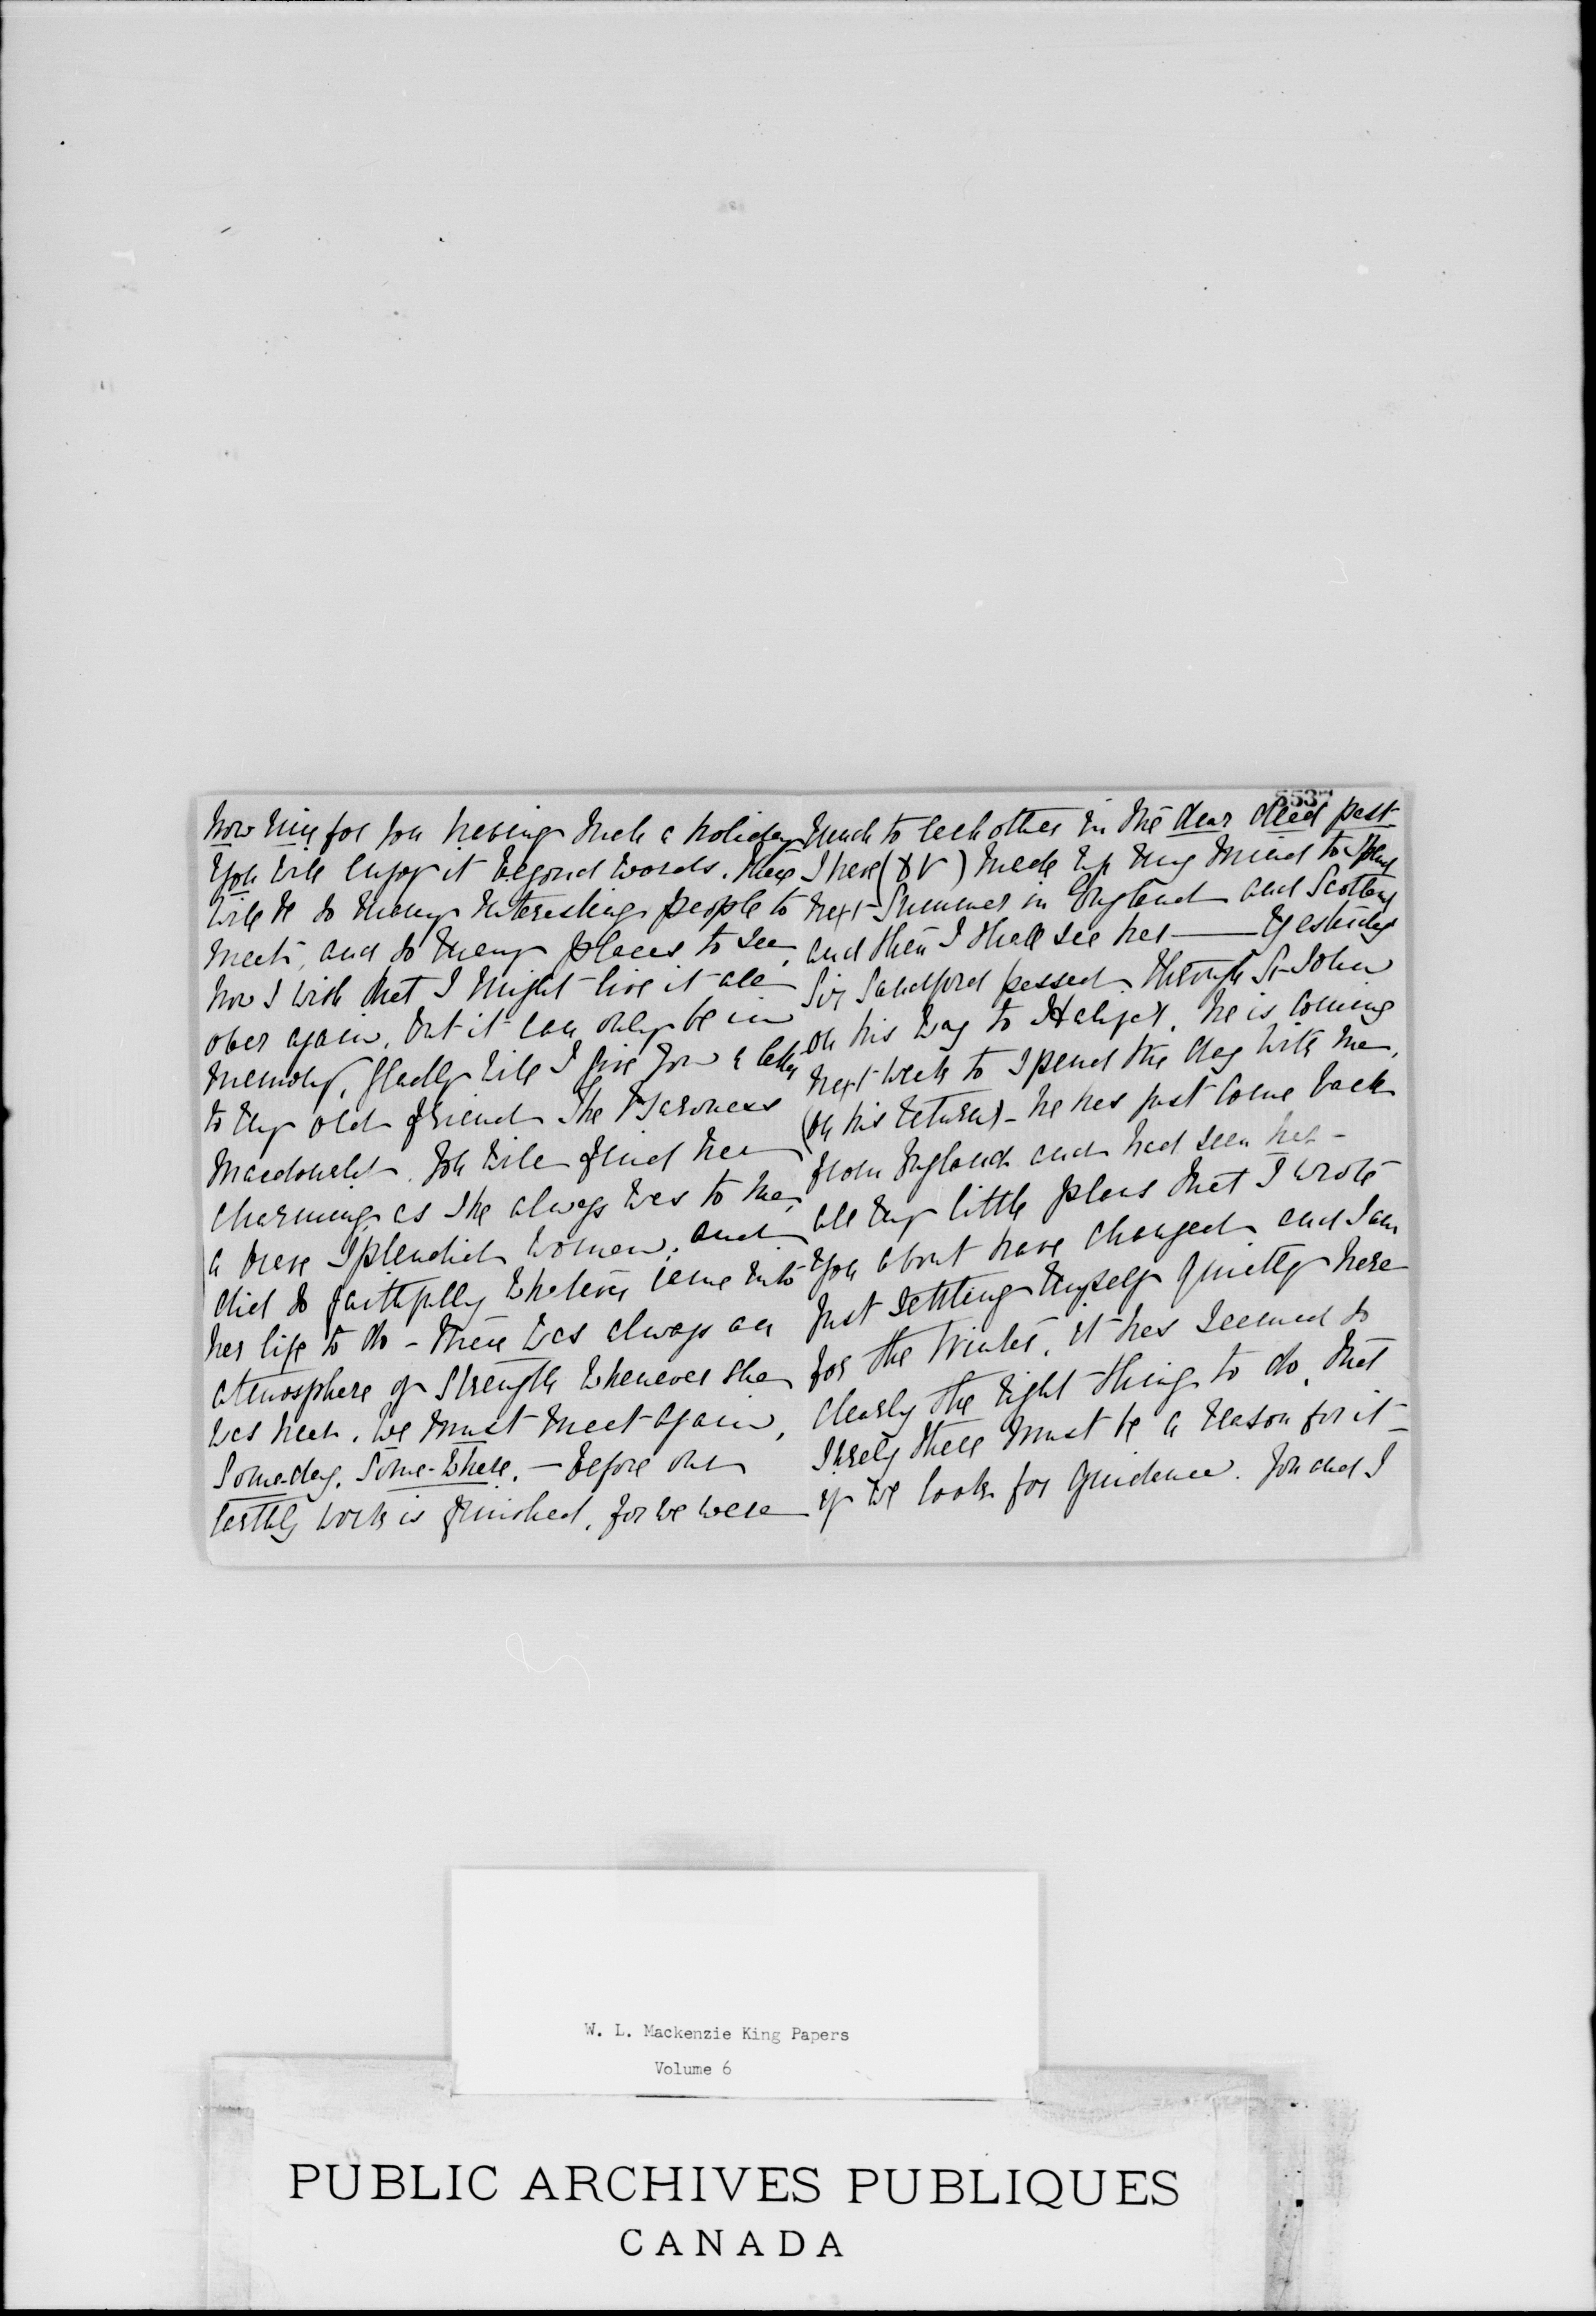 How nice for you having such a holiday
You will enjoy it beyond words. There
will be so many interesting people to
meet, and so many places to see,
how I wish that I might live it all
over again, but it can only be in
memory, gladly will I give you a letter
to my old friend The Baroness
Macdonald. You will find her
charming as she always was to me,
a brave splendid woman, and
did so faithfully whatever came into
her life to do - there was always an
atmosphere of strength whenever she
was near. We must meet again,
Someday. Some-where. - before our
earthly work is finished, for we were
5537
much to each other in the dear dead past
I have (D.V.) made up my mind to spend
next Summer in England and Scotland
and then I shall see her — Yesterday
Sir Sandford passed through St John
on his way to Halifax. he is coming
next week to spend the day with me,
(on his return) - he has just come back
from England and had seen her -
all my little plans that I wrote
you about have changed and I am
just settling myself quietly here
for the Winter, it has seemed so
clearly the right thing to do, that
surely there must be a reason for it -
if we look for guidance. You and I
W. L. Mackenzie King Papers
Volume 6
PUBLIC ARCHIVES PUBLIQUES
CANADA